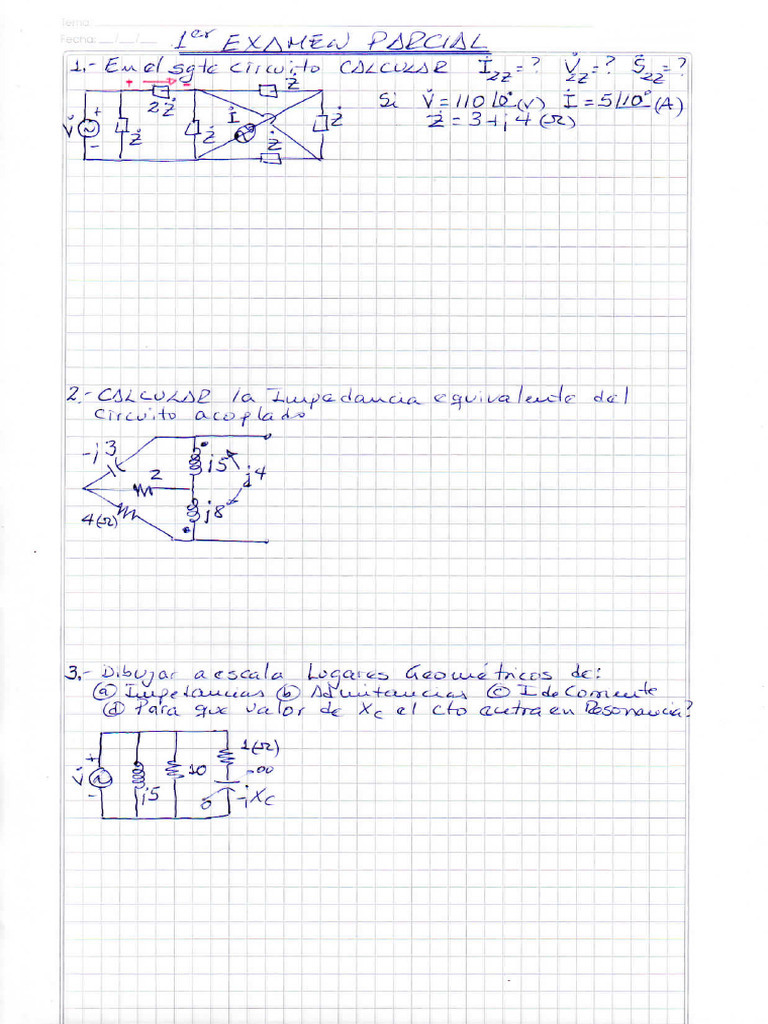 Tema:
Fecha: __/__/__
1er EXAMEN PARCIAL
1.- En el sgte circuito CALCULAR İ2Z=? V̇2Z=? Ṡ2Z=?
+ → -
Ż
2Ż
Si V̇ = 110 /0° (V) İ = 5 /10° (A)
Ż = 3+j 4 (Ω)
V̇
+
-
Ż
Ż
İ
Ż
Ż
2.- CALCULAR la Impedancia equivalente del
circuito acoplado
-j3
2
j5
j4
4(Ω)
j8
3.- Dibujar a escala Lugares Geométricos de:
(a) Impedancias (b) Admitancias (c) I de Corriente
(d) Para que valor de Xc el cto entra en Resonancia?
V̇
+
-
j5
10
1(Ω)
∞
0
-jXc